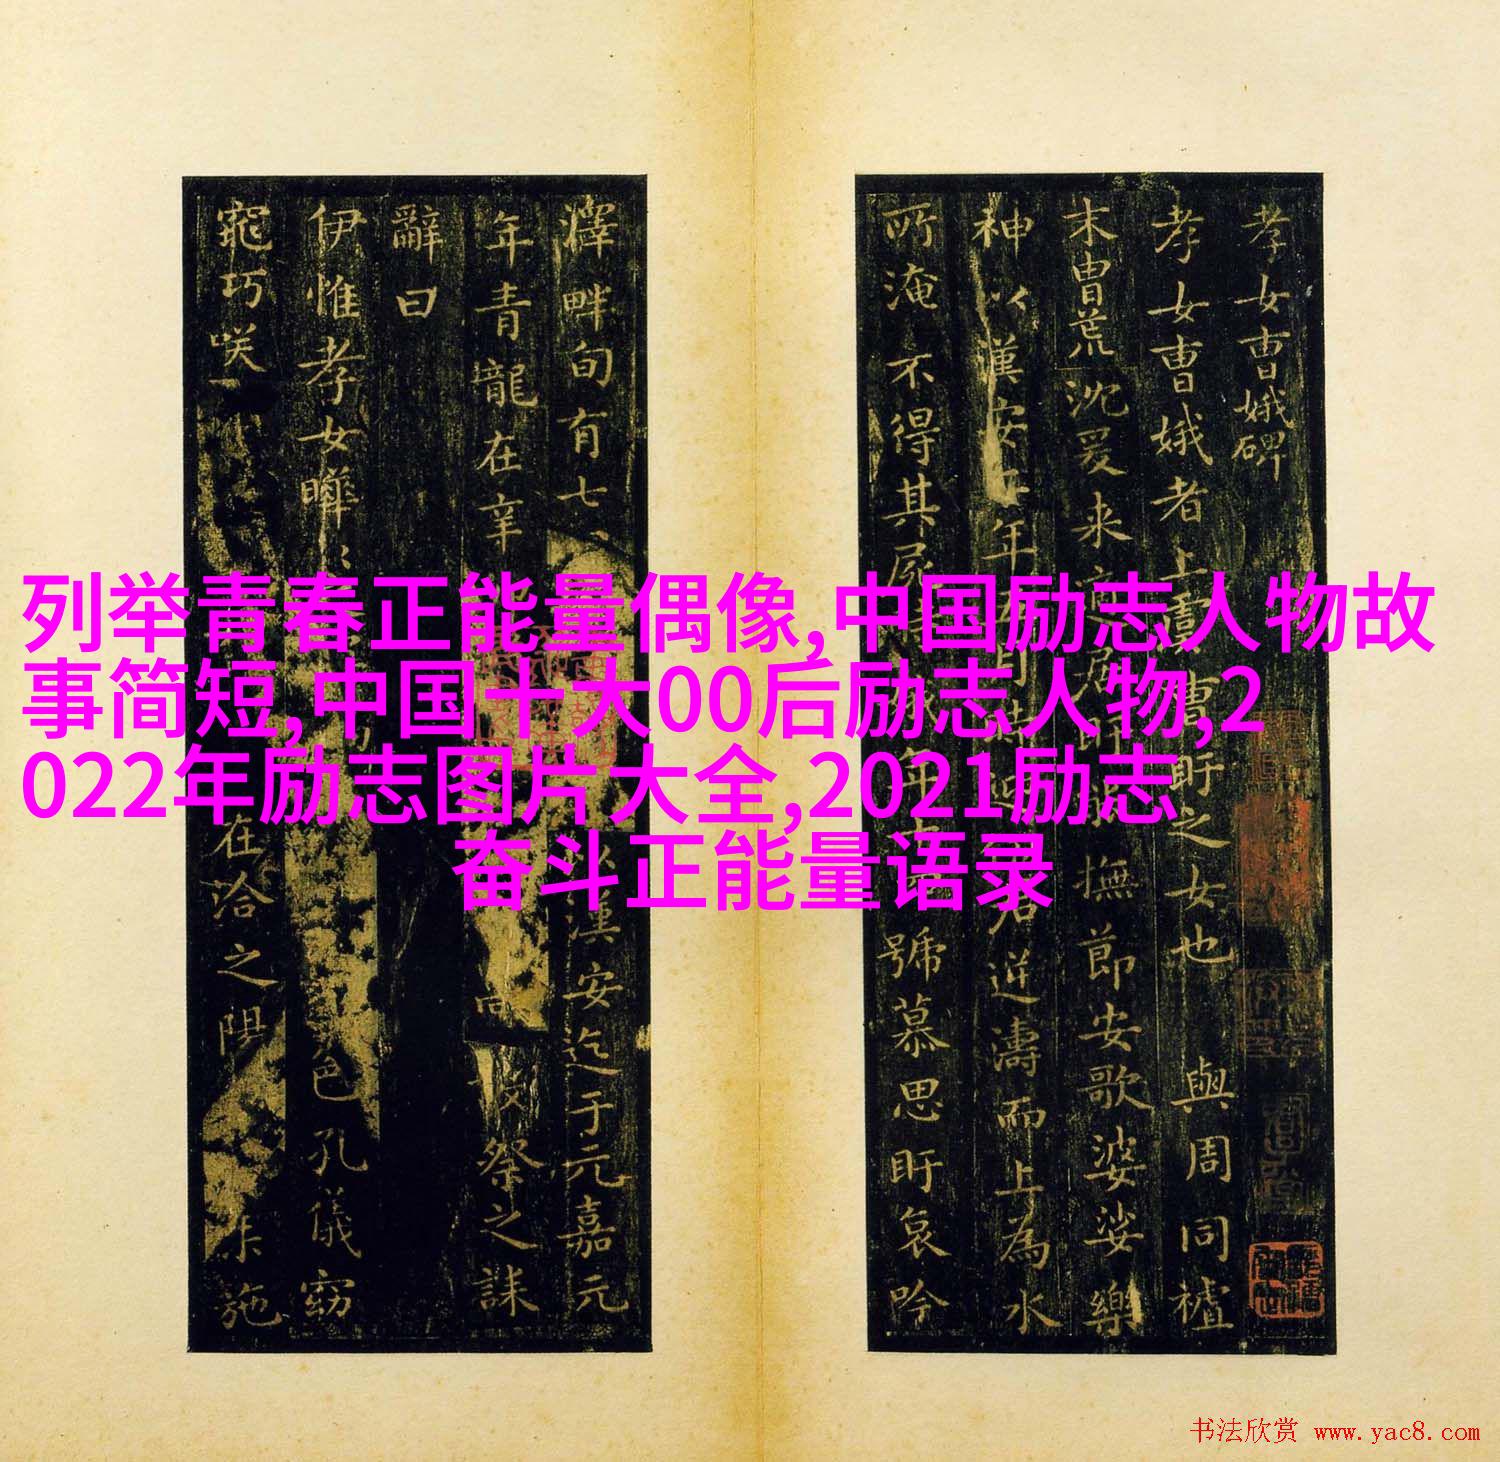 孝女曹娥碑
孝女曹娥者上虞曹盱之女也 與周同禇
末冑荒沈爰来
撫節安歌婆娑樂
神以漢安二年五月
迎
君逆濤而上為水
所淹不得其屍
號慕思盱哀吟
澤畔旬有七
漢安迄于元嘉元
年青龍在辛
祭之誄
辭曰
伊惟孝女曄
色孔儀窈
窕巧咲
在洽之陽
施
列举青春正能量偶像,中国励志人物故
事简短,中国十大00后励志人物,2
022年励志图片大全,2021励志
奋斗正能量语录
书法欣赏 www.yac8.com